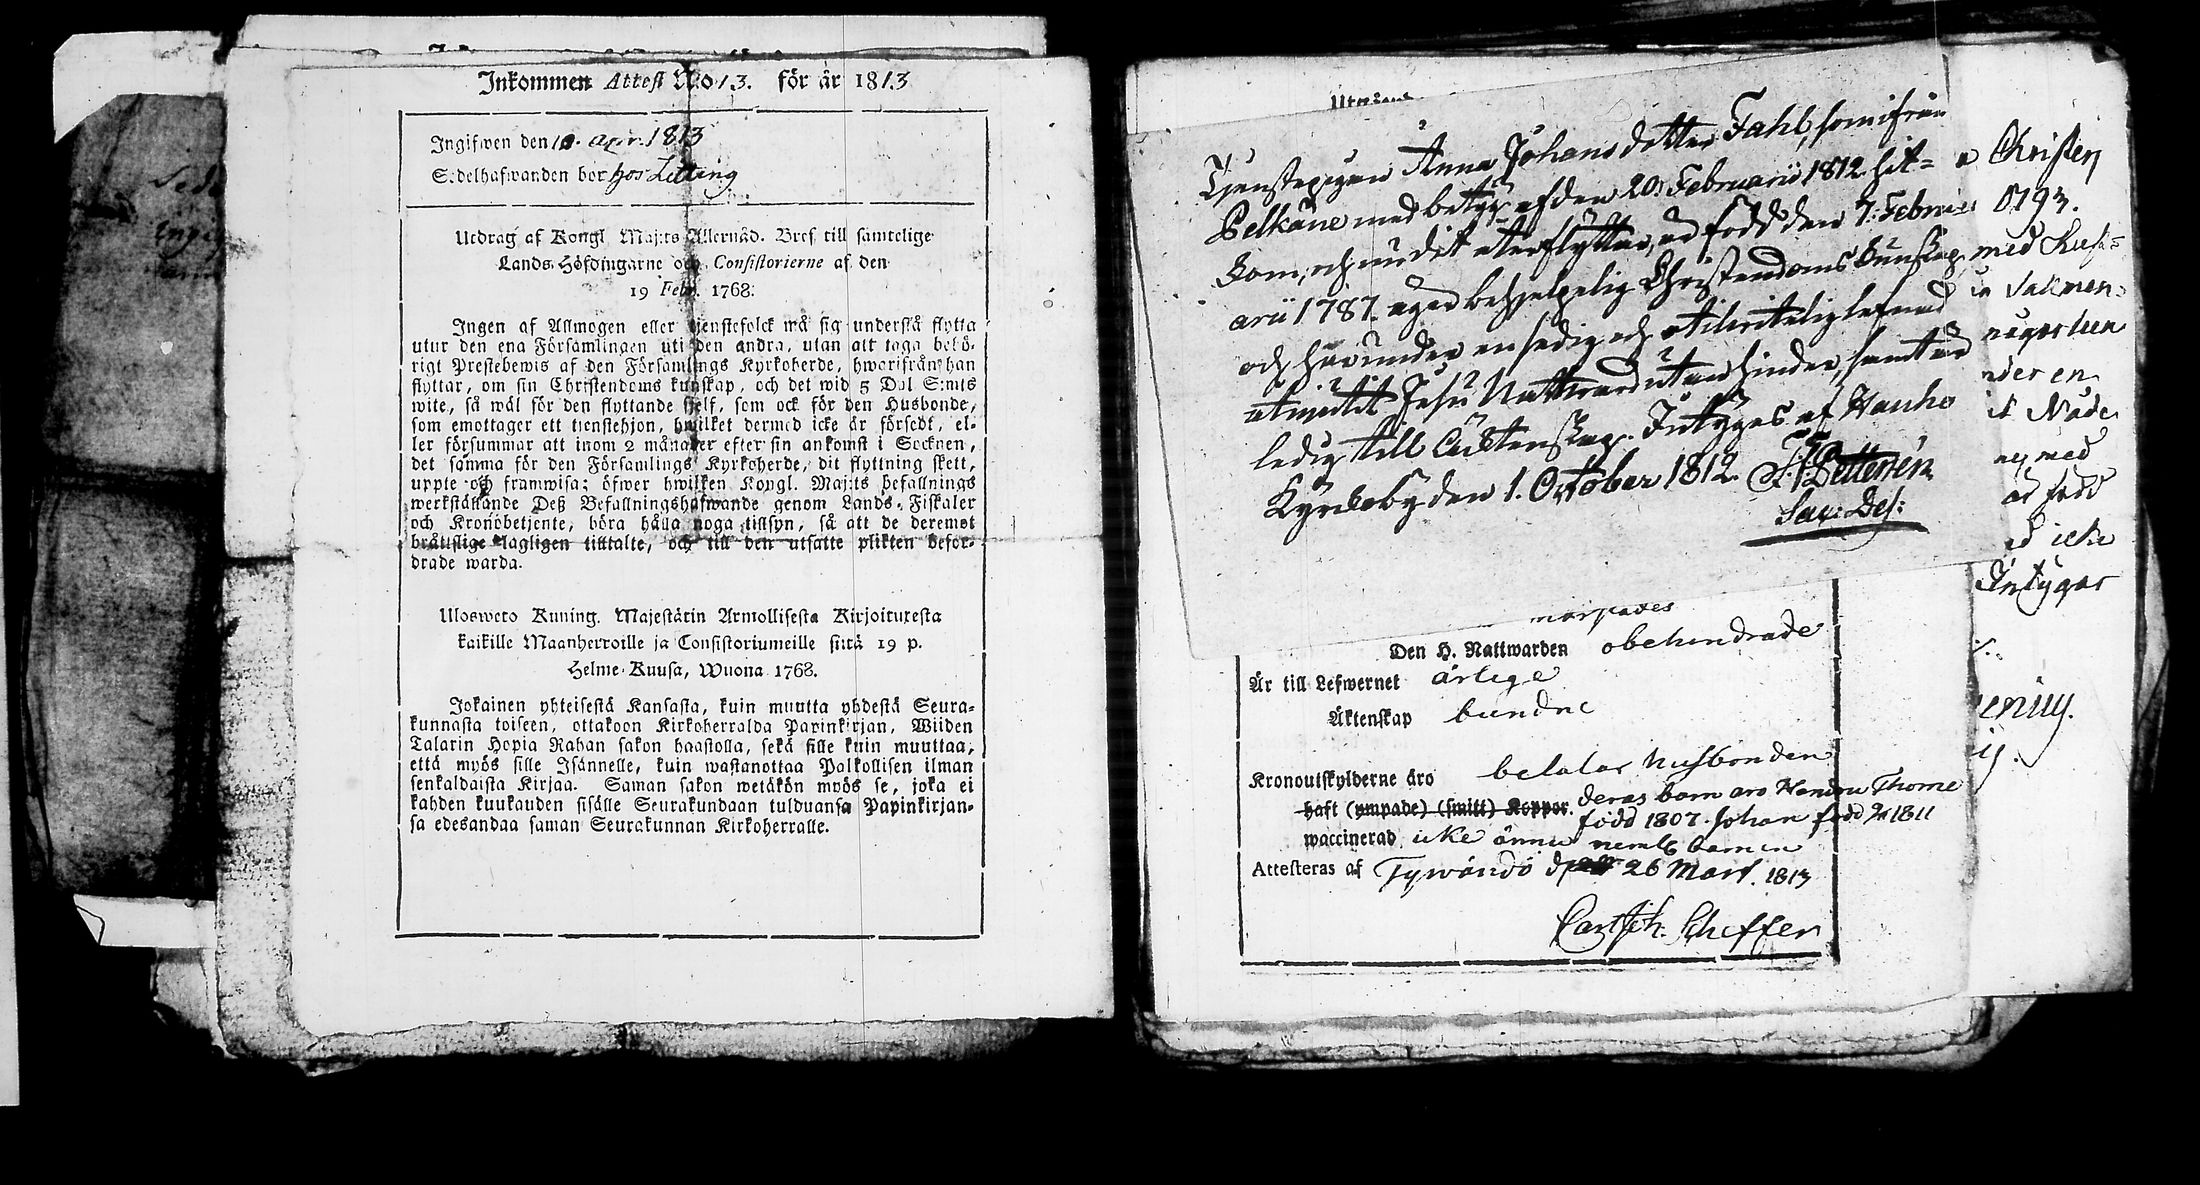 Inkommen Attest No 13. för år 1813
Ingifwen den 10. Apr. 1813
Sedelhafwanden bor hos Letting
Utdrag af Kongl Maj:ts Allernåd. Bref till samtelige
Lands-Höfdingarne och Consistorierne af den
19 Febr. 1768.
Ingen af Allmogen eller tjenstefolck må sig understå flytta
utur den ena Församlingen uti den andra, utan att taga behö-
rigt Prestebewis af den Församlings Kyrkoherde, hwarifrån han
flyttar, om sin Christendoms kunskap, och det wid 5 Dal S:mts
wite, så wäl för den flyttande sjelf, som ock för den Husbonde,
som emottager ett tjenstehjon, hwilket dermed icke är försedt, el-
ler försummar att inom 2 månader efter sin ankomst i Socknen,
det samma för den Församlings Kyrkoherde, dit flyttning skett,
uppte och framwisa; öfwer hwilken Kongl. Maj:ts befallnings
werkställande Deß Befallningshafwande genom Lands-Fiskaler
och Kronobetjente, böra hålla noga tillsyn, så att de deremot
bråttslige lagligen tilltalte, och till den utsatte plikten befor-
drade warda.
Ulosweto Kuning. Majestätin Armollisesta Kirjoituxesta
kaikille Maanherroille ja Consistoriumeille siitä 19 p.
Helme-Kuusa, Wuona 1768.
Jokainen yhteisestä Kansasta, kuin muutta yhdestä Seura-
kunnasta toiseen, ottakoon Kirkoherralda Papinkirjan, Wiiden
Talarin Hopia Rahan sakon haastolla, sekä sille kuin muuttaa,
että myös sille Isännelle, kuin wastanottaa Palkollisen ilman
senkaldaista Kirjaa. Saman sakon wetäkön myös se, joka ei
kahden kuukauden sisälle Seurakundaan tulduansa Papinkirjan-
sa edesandaa saman Seurakunnan Kirkoherralle.
Tjenstepigan Anna Johansdotter Fahl, som ifrån
Pelkäne med betyg af den 20. Februarii 1812 hit-
kom, och nu dit återflyttar, är född den 7. Febru-
arii 1787. äger behjelpelig Christendoms kunskap
och har under en sedig och otilvitelig lefnad
utnjutit Jesu Nattvard utan hinder, samt är
ledig till Ecktenskap. Intygas af Hauho
Kyrckoby den 1. October 1812.
Sac: Dej:
Christen
1793.
med
en
Nåde
med
född
icke
Intygar
Den H. Nattwarden obehindrade
Är till Lefwernet ärlige
Äktenskap bundne
Kronoutskylderne äro betalar Husbonden
haft (ympade) (smitt) Koppor. deras barn äro Thome
född 1807. Johan född 1811
waccinerad icke ännu neml. barnen
Attesteras af Tywändö d 26 Mart. 1813
Scheffer